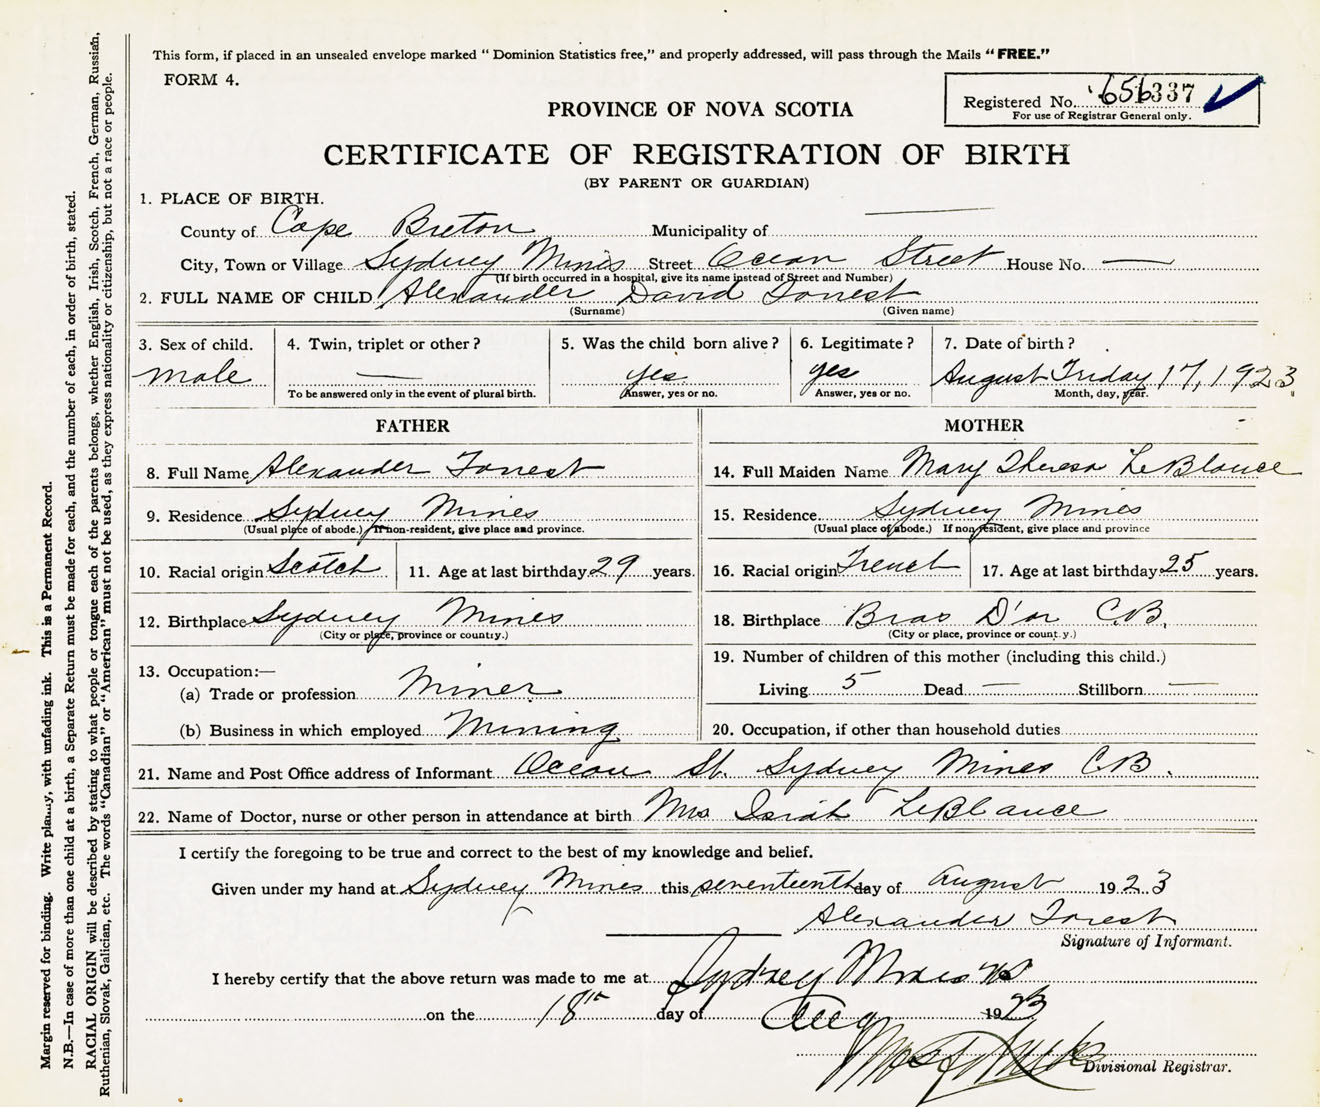 This form, if placed in an unsealed envelope marked " Dominion Statistics free," and properly addressed, will pass through the Mails "FREE."
FORM 4.
Registered No. 656337
For use of Registrar General only.
PROVINCE OF NOVA SCOTIA
CERTIFICATE OF REGISTRATION OF BIRTH
(BY PARENT OR GUARDIAN)
1. PLACE OF BIRTH.
County of Cape Breton Municipality of —
City, Town or Village Sydney Mines Street Ocean Street House No. —
(If birth occurred in a hospital, give its name instead of Street and Number)
2. FULL NAME OF CHILD Alexander David Forrest
(Surname) (Given name)
3. Sex of child. 4. Twin, triplet or other? 5. Was the child born alive? 6. Legitimate? 7. Date of birth?
male — yes yes August Friday 17, 1923
To be answered only in the event of plural birth. Answer, yes or no. Answer, yes or no. Month, day, year.
FATHER
8. Full Name Alexander Forrest
9. Residence Sydney Mines
(Usual place of abode.) If non-resident, give place and province.
10. Racial origin Scotch 11. Age at last birthday 29 years.
12. Birthplace Sydney Mines
(City or place, province or country.)
13. Occupation:—
(a) Trade or profession Miner
(b) Business in which employed Mining
MOTHER
14. Full Maiden Name Mary Theresa LeBlance
15. Residence Sydney Mines
(Usual place of abode.) If non resident, give place and province
16. Racial origin French 17. Age at last birthday 25 years.
18. Birthplace Bras D'or C.B.
(City or place, province or country.)
19. Number of children of this mother (including this child.)
Living 5 Dead — Stillborn —
20. Occupation, if other than household duties
21. Name and Post Office address of Informant Ocean St. Sydney Mines C.B.
22. Name of Doctor, nurse or other person in attendance at birth Mrs Isiah LeBlance
I certify the foregoing to be true and correct to the best of my knowledge and belief.
Given under my hand at Sydney Mines this seventeenth day of August 1923
Alexander Forest
Signature of Informant.
I hereby certify that the above return was made to me at Sydney Mines NS
on the 18th day of Aug 1923
Divisional Registrar.
Margin reserved for binding. Write plainly, with unfading ink. This is a Permanent Record.
N.B.—In case of more than one child at a birth, a Separate Return must be made for each, and the number of each, in order of birth, stated.
RACIAL ORIGIN will be described by stating to what people or tongue each of the parents belongs, whether English, Irish, Scotch, French, German, Russian,
Ruthenian, Slovak, Galician, etc. The words "Canadian" or "American" must not be used, as they express nationality or citizenship, but not a race or people.